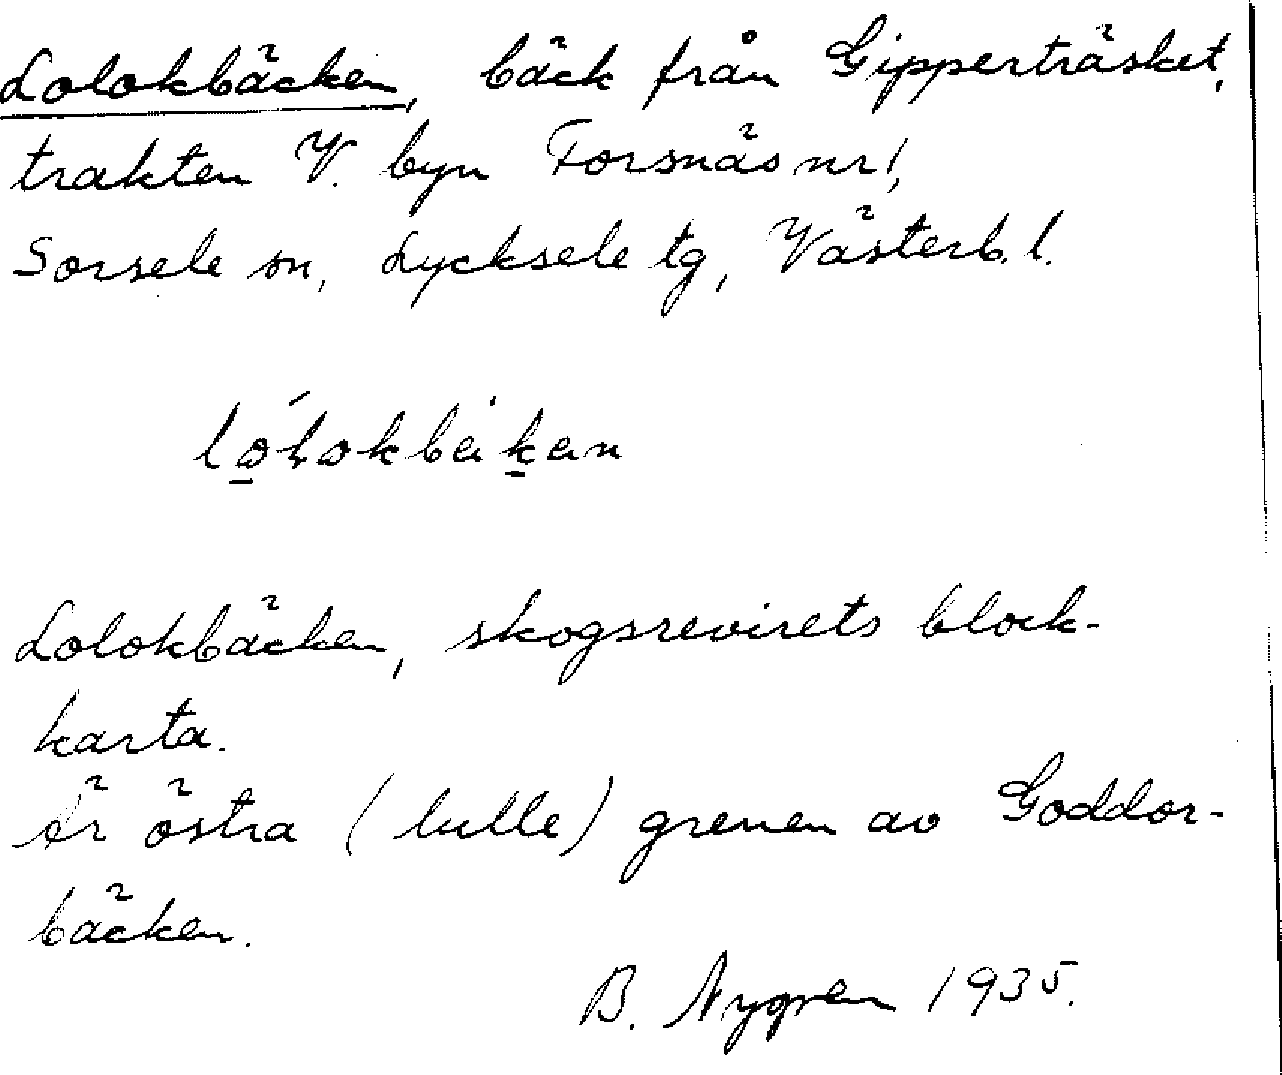 Lolokbäcken, bäck från Gipperträsket,
trakten V. byn Forsnäs nr 1,
Sorsele sn, Lycksele tg, Västerb. l.
Lolokbäcken, skogsrevirets block-
karta.
Är östra (lulle) grenen av Goddor-
bäcken.
B. Nygren 1935.